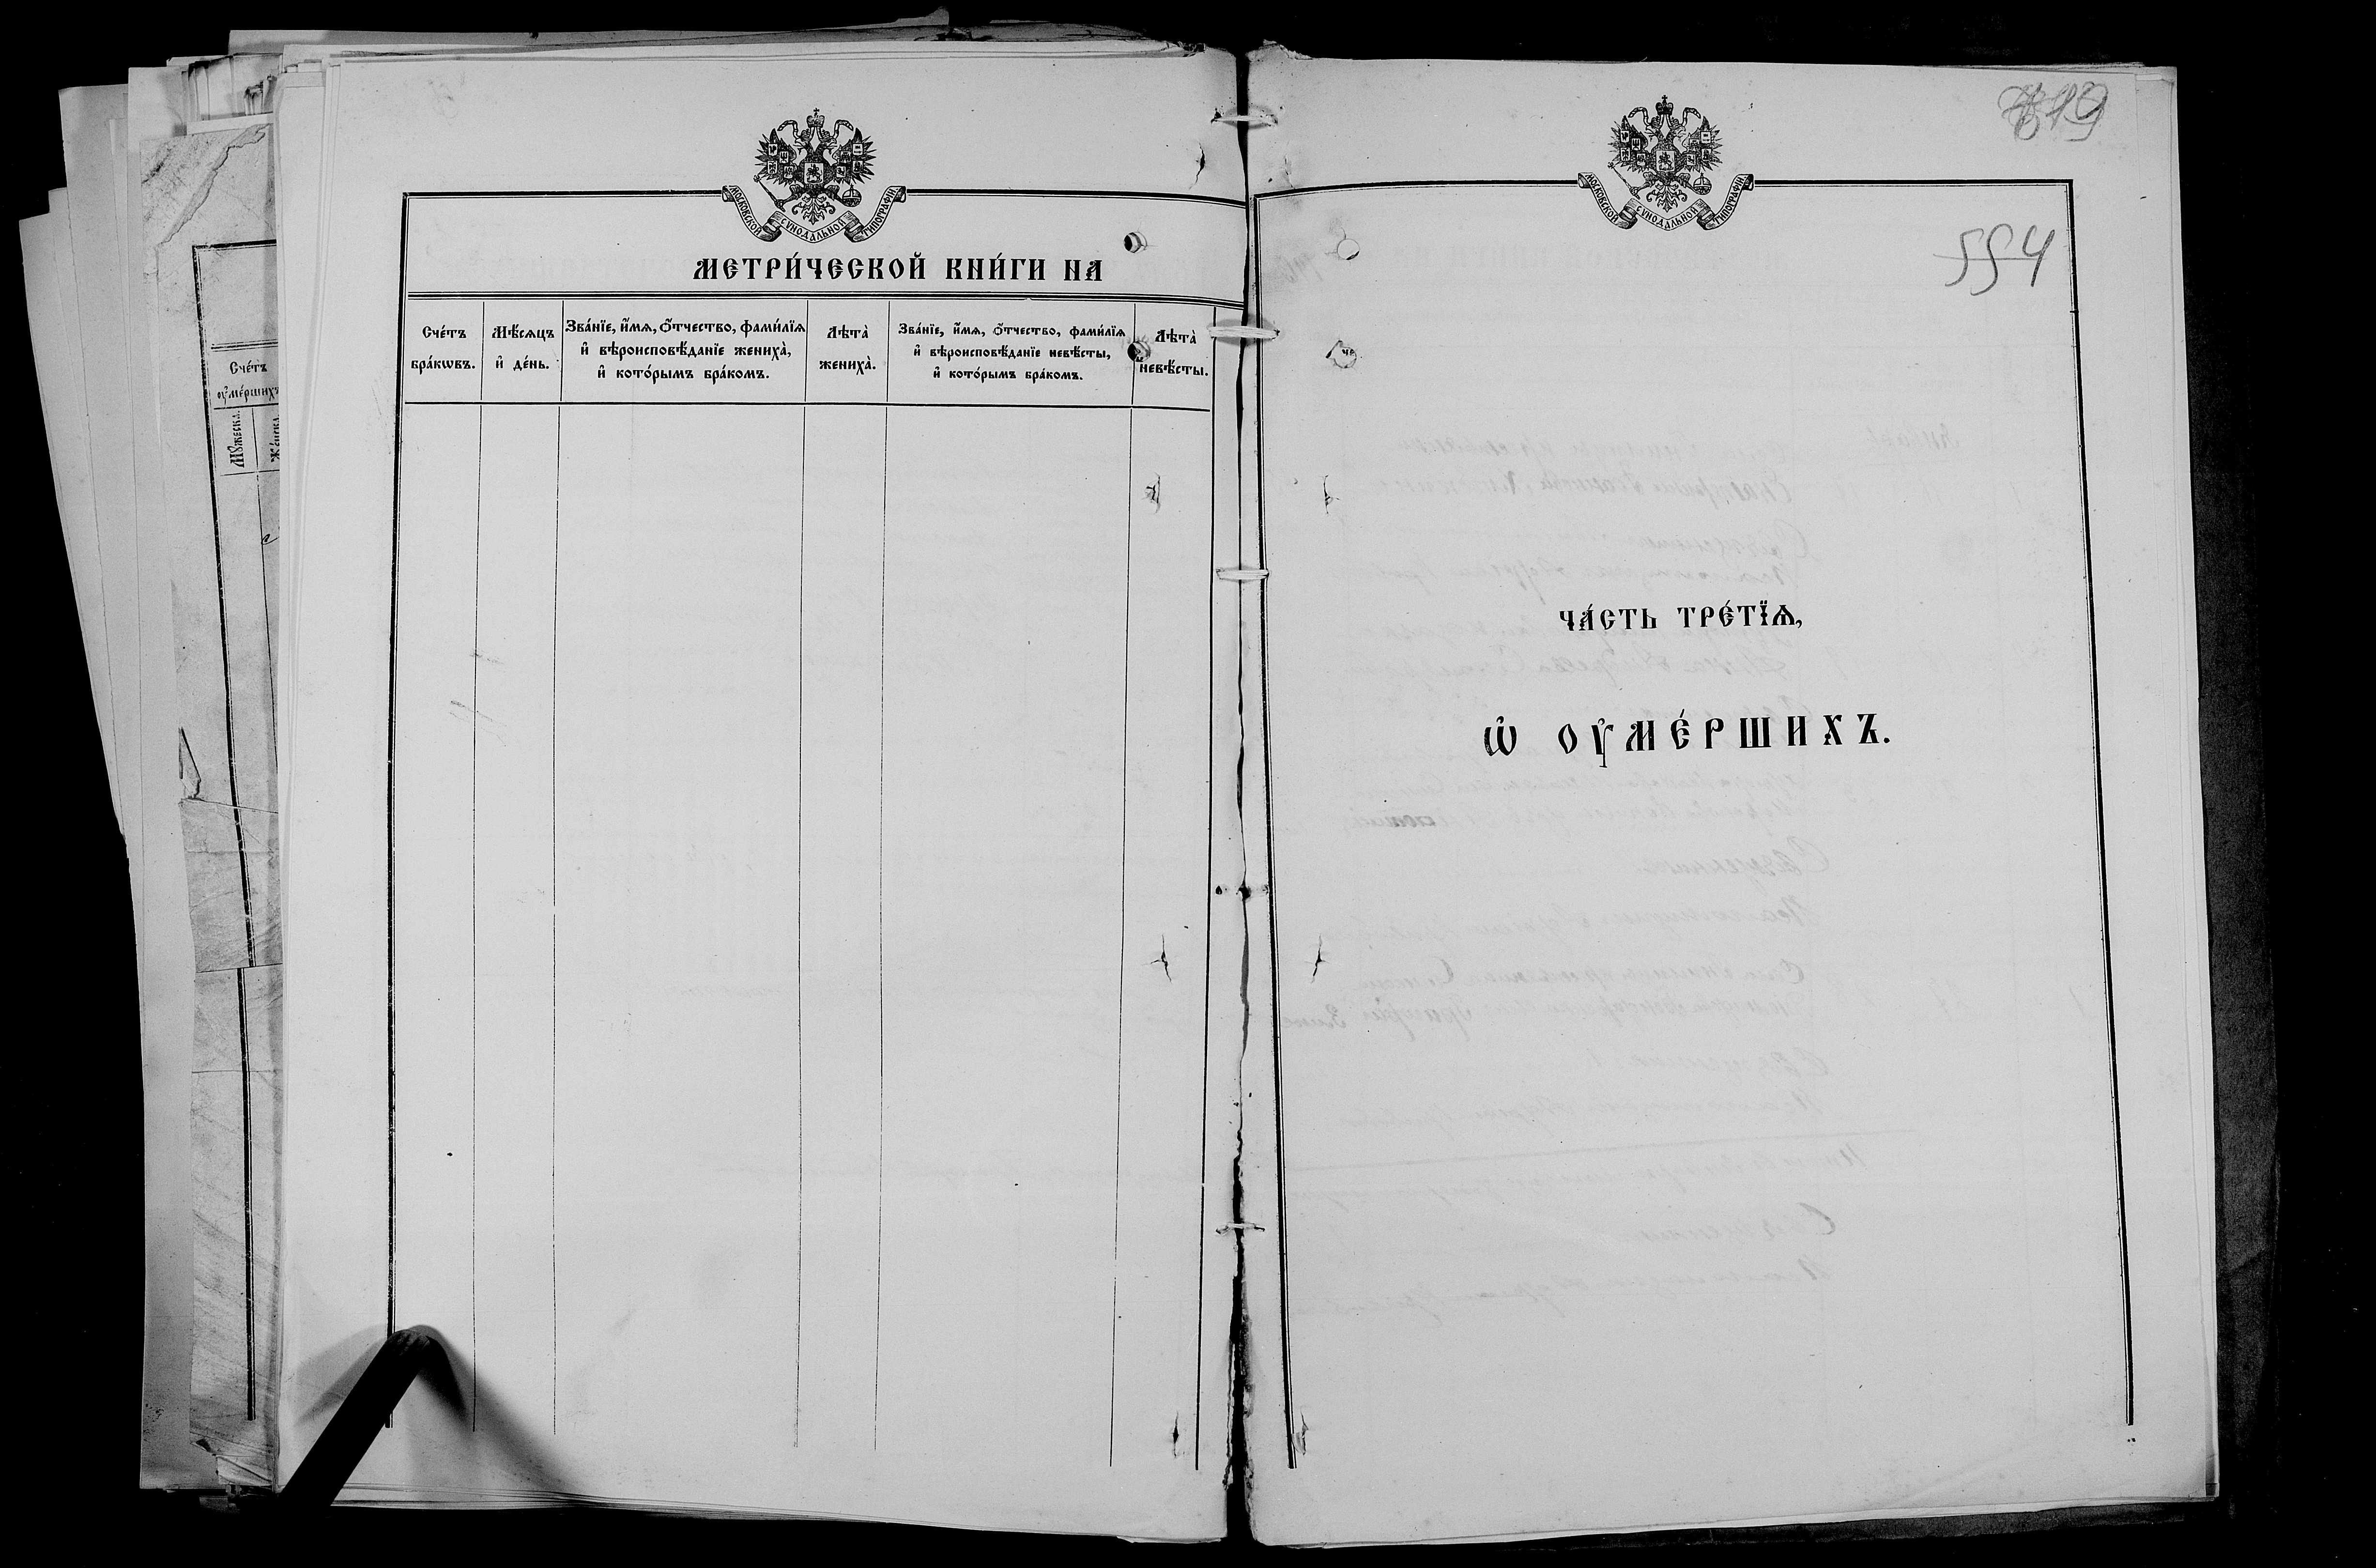 Сче́тъ
ᲂу҆ме́ршихъ
Мꙋ́жеска.
Же́нска.
МОСКОВСКОЙ СѴНОДАЛЬНОЙ ТИПОГРАФІИ
МЕТРИ́ЧЕСКОЙ КНИ́ГИ НА
Сче́тъ бра́кѡвъ.
Мѣ́сѧцъ и҆ де́нь.
Зва́нїе, и҆́мѧ, ѻ҆́тчество, фами́лїѧ
и҆ вѣроисповѣ́данїе жениха̀,
и҆ кото́рымъ бра́комъ.
Лѣта̀ жениха̀.
Зва́нїе, и҆́мѧ, ѻ҆́тчество, фами́лїѧ
и҆ вѣроисповѣ́данїе невѣ́сты,
и҆ кото́рымъ бра́комъ.
Лѣта̀ невѣ́сты.
МОСКОВСКОЙ СѴНОДАЛЬНОЙ ТИПОГРАФІИ
554
ЧА́СТЬ ТРЕ́ТЇѦ,
Ѡ҆ ОУ҆МЕ́РШИХЪ.